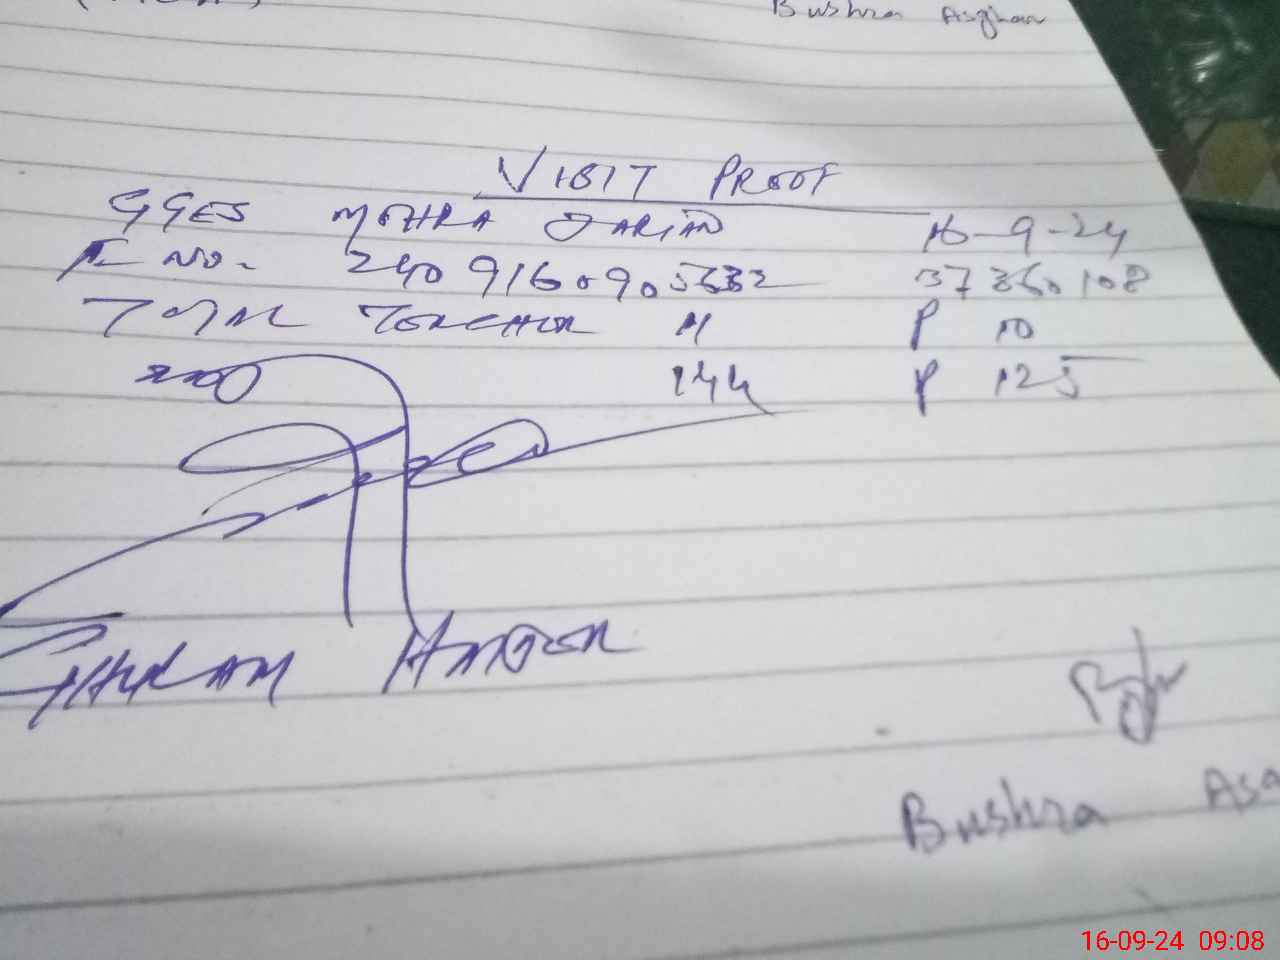 Bushra Asghar
VISIT PROOF
GGES MOHRA DARIAN 16-9-24
NO. 240 916 0 90 5332 37360108
TOTAL TEACHER 11 P 10
144 P 125
GHULAM
Bushra Asg
16-09-24 09:08